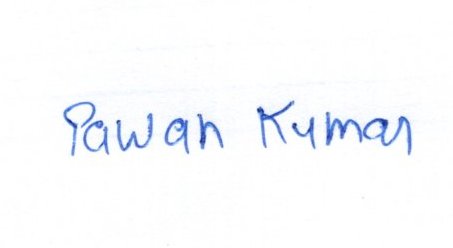 Pawan Kumar